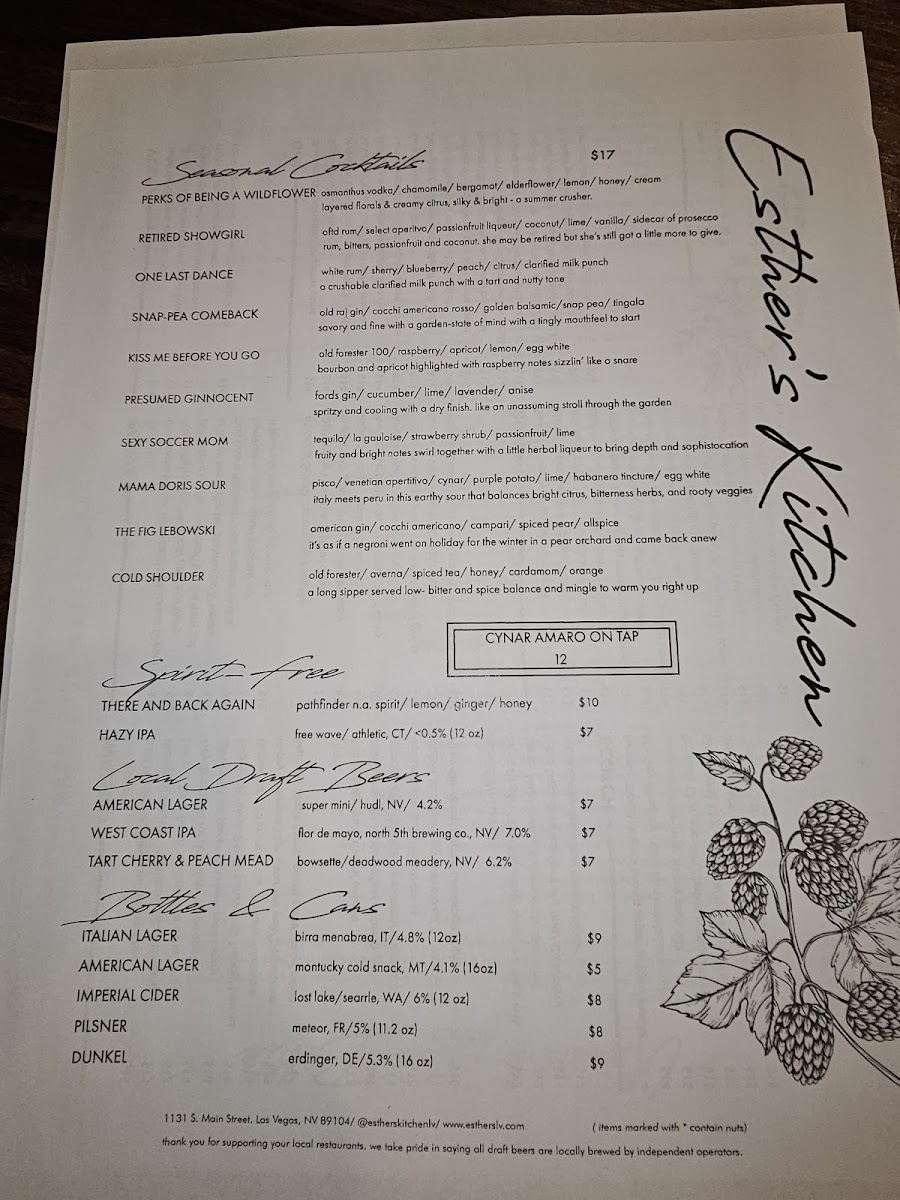 Esther's Kitchen
Seasonal Cocktails $17
PERKS OF BEING A WILDFLOWER osmanthus vodka/ chamomile/ bergamot/ elderflower/ lemon/ honey/ cream
layered florals & creamy citrus, silky & bright - a summer crusher.
RETIRED SHOWGIRL oftd rum/ select aperitvo/ passionfruit liqueur/ coconut/ lime/ vanilla/ sidecar of prosecco
rum, bitters, passionfruit and coconut. she may be retired but she's still got a little more to give.
ONE LAST DANCE white rum/ sherry/ blueberry/ peach/ citrus/ clarified milk punch
a crushable clarified milk punch with a tart and nutty tone
SNAP-PEA COMEBACK old raj gin/ cocchi americano rosso/ golden balsamic/snap pea/ tingala
savory and fine with a garden-state of mind with a tingly mouthfeel to start
KISS ME BEFORE YOU GO old forester 100/ raspberry/ apricot/ lemon/ egg white
bourbon and apricot highlighted with raspberry notes sizzlin' like a snare
PRESUMED GINNOCENT fords gin/ cucumber/ lime/ lavender/ anise
spritzy and cooling with a dry finish. like an unassuming stroll through the garden
SEXY SOCCER MOM tequila/ la gauloise/ strawberry shrub/ passionfruit/ lime
fruity and bright notes swirl together with a little herbal liqueur to bring depth and sophistocation
MAMA DORIS SOUR pisco/ venetian apertitivo/ cynar/ purple potato/ lime/ habanero tincture/ egg white
italy meets peru in this earthy sour that balances bright citrus, bitterness herbs, and rooty veggies
THE FIG LEBOWSKI american gin/ cocchi americano/ campari/ spiced pear/ allspice
it's as if a negroni went on holiday for the winter in a pear orchard and came back anew
COLD SHOULDER old forester/ averna/ spiced tea/ honey/ cardamom/ orange
a long sipper served low- bitter and spice balance and mingle to warm you right up
CYNAR AMARO ON TAP
12
Spirit-free
THERE AND BACK AGAIN pathfinder n.a. spirit/ lemon/ ginger/ honey $10
HAZY IPA free wave/ athletic, CT/ <0.5% (12 oz) $7
Local Draft Beers
AMERICAN LAGER super mini/ hudl, NV/ 4.2% $7
WEST COAST IPA flor de mayo, north 5th brewing co., NV/ 7.0% $7
TART CHERRY & PEACH MEAD bowsette/deadwood meadery, NV/ 6.2% $7
Bottles & Cans
ITALIAN LAGER birra menabrea, IT/4.8% (12oz) $9
AMERICAN LAGER montucky cold snack, MT/4.1% (16oz) $5
IMPERIAL CIDER lost lake/searrle, WA/ 6% (12 oz) $8
PILSNER meteor, FR/5% (11.2 oz) $8
DUNKEL erdinger, DE/5.3% (16 oz) $9
1131 S. Main Street, Las Vegas, NV 89104/ @estherskitchenlv/ www.estherslv.com (items marked with * contain nuts)
thank you for supporting your local restaurants. we take pride in saying all draft beers are locally brewed by independent operators.